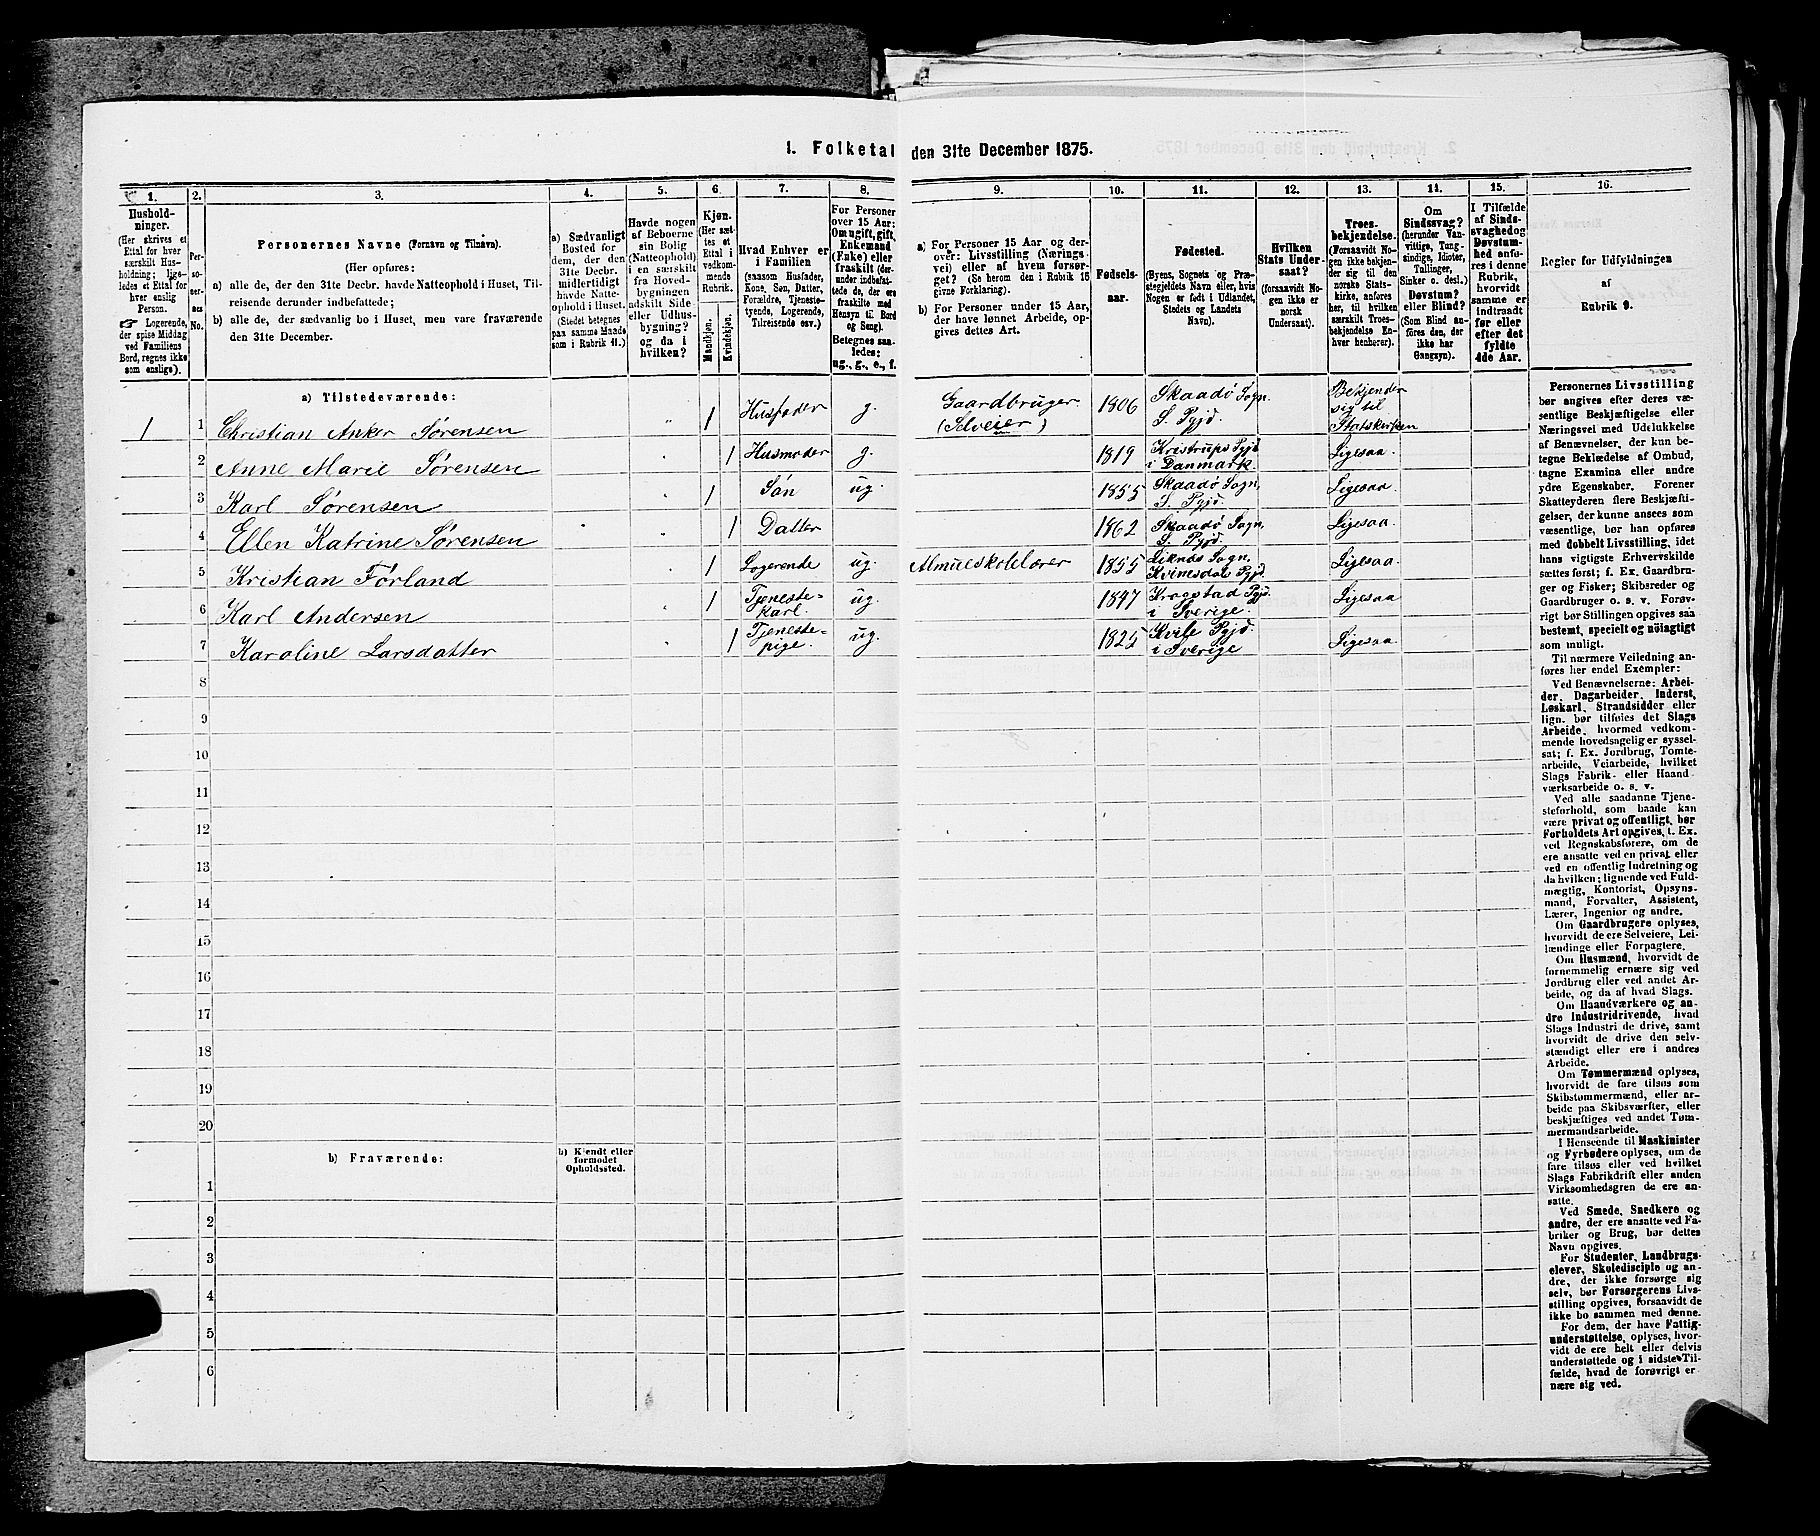 1. Folketal den 31te December 1875.
1.
2.
3.
4.
5.
6.
7.
8.
9.
10.
11.
12.
13.
14.
15.
16.
Hushold-
ninger.
(Her skrives et
Ettal for hver
særskilt Hus-
holdning; lige-
ledes et Ettal for
hver enslig
Person.
☞ Logerende,
der spise Middag
ved Familiens
Bord, regnes ikke
som enslige).
Per-
so-
ner-
nes
No.
Personernes Navne (Fornavn og Tilnavn).
(Her opføres:
a) alle de, der den 31te Decbr. havde Natteophold i Huset, Til-
reisende derunder indbefattede;
b) alle de, der sædvanlig bo i Huset, men vare fraværende
den 31te December.
a) Sædvanligt
Bosted for
dem, der den
31te Decbr.
midlertidigt
havde Natte-
ophold i Huset.
(Stedet betegnes
paa samme Maade
som i Rubrik 11.)
Havde nogen
af Beboerne
sin Bolig
(Natteophold)
i en særskilt
fra Hoved-
bygningen
adskilt Side
eller Udhus-
bygning?
og da i
hvilken?
Kjøn.
(Her sæt-
tes et
Ettal i
vedkom-
mende
Rubrik.
Mandkjøn.
Kvindekjøn.
Hvad Enhver er
i Familien
(saasom Husfader,
Kone, Søn, Datter,
Forældre, Tjeneste-
tyende, Logerende,
Tilreisende osv.)
For Personer
over 15 Aar:
Om ugift, gift,
Enkemand
(Enke) eller
fraskilt (der-
under indbefat-
tede de, der ere
fraskilte med
Hensyn til Bord
og Seng).
Betegnes saa-
ledes:
ug., g., e., f.
a) For Personer 15 Aar og der-
over: Livsstilling (Nærings-
vei) eller af hvem forsør-
get. (Se herom den i Rubrik 16
givne Forklaring).
b) For Personer under 15 Aar,
der have lønnet Arbeide, op-
gives dettes Art.
Fødsels-
aar.
Fødested.
(Byens, Sognets og Præ-
stegjeldets Navn eller, hvis
Nogen er født i Udlandet,
Stedets og Landets
Navn).
Hvilken
Stats Under-
saat?
(forsaavidt No-
gen ikke er
norsk
Undersaat).
Troes-
bekjendelse.
(Forsaavidt No-
gen ikke bekjen-
der sig til den
norske Stats-
kirke, anføres
her, til hvilken
særskilt Troes-
bekjendelse En-
hver henhører).
Om
Sindssvag?
(herunder Van-
vittige, Tung-
sindige, Idioter,
Tullinger,
Sinker o. desl.)
Døvstum?
eller Blind?
(Som Blind an-
føres den, der
ikke har
Gangsyn).
I Tilfælde
af Sinds-
svaghed og
Døvstum-
hed anfø-
res i denne
Rubrik,
hvorvidt
samme er
indtraadt
før eller
efter det
fyldte
4de Aar.
Regler for Udfyldningen
af
Rubrik 9.
a) Tilstedeværende:
1 1 Christian Anker Sørensen 1 Husfader g. Gaardbruger (Selveier) 1806 Skaadø Sogn. S. Pgjd. Bekjender sig til Statskirken
2 Anne Marie Sørensen 1 Husmoder g. 1819 Kristrups Pgjd i Danmark Ligesaa
3 Karl Sørensen 1 Søn ug. 1855 Skaadø Sogn, S. Pgjd. Ligesaa
4 Ellen Katrine Sørensen 1 Datter 1862 Skaadø Sogn, S. Pgjd. Ligesaa
5 Kristian Førland 1 Logerende ug. Almueskolelærer 1855 Liknæs Sogn, Kvinesdal Pgjd. Ligesaa
6 Karl Andersen 1 Tjeneste-karl. ug. 1847 Krogstad Pgjd. i Sverige. Ligesaa
7 Karoline Larsdatter 1 Tjeneste-pige. ug. 1825 Kvile Pgjd. i Sverige Ligesaa
8
9
10
11
12
13
14
15
16
17
18
19
20
b) Fraværende:
b) Kjendt eller
formodet
Opholdssted.
1
2
3
4
5
6
Personernes Livsstilling
bør angives efter deres væ-
sentlige Beskjæftigelse eller
Næringsvei med Udelukkelse
af Benævnelser, der kun be-
tegne Beklædelse af Ombud,
tagne Examina eller andre
ydre Egenskaber. Forener
Skatteyderen flere Beskjæfti-
gelser, der kunne ansees som
væsentlige, bør han opføres
med dobbelt Livsstilling, idet
hans vigtigste Erhvervskilde
sættes først; f. Ex. Gaardbru-
ger og Fisker; Skibsreder og
Gaardbruger o. s. v. Forøv-
rigt bør Stillingen opgives saa
bestemt, specielt og nøiagtigt
som muligt.
Til nærmere Veiledning an-
føres her endel Exempler:
Ved Benævnelserne: Arbei-
der, Dagarbeider, Inderst,
Løskarl, Strandsidder eller
lign. bør tilføies det Slags
Arbeide, hvormed vedkom-
mende hovedsagelig er syssel-
sat; f. Ex. Jordbrug, Tomte-
arbeide, Veiarbeide, hvilket
Slags Fabrik- eller Haand-
værksarbeide o. s. v.
Ved alle saadanne Tjene-
steforhold, som baade kan
være privat og offentligt, bør
Forholdets Art opgives, t. Ex.
ved Regnskabsførere, om de
ere ansatte ved en privat eller
ved en offentlig Indretning og
da hvilken; lignende ved Fuld-
mægtig, Kontorist, Opsyns-
mand, Forvalter, Assistent,
Lærer, Ingeniør og andre.
Om Gaardbrugere oplyses,
hvorvidt de ere Selveiere, Lei-
lændinge eller Forpagtere.
Om Husmænd, hvorvidt de
fornemmelig ernære sig ved
Jordbrug eller ved andet Ar-
beide, og da af hvad Slags.
Om Haandværkere og an-
dre Industridrivende, hvad
Slags Industri de drive, samt
hvorvidt de drive den selv-
stændigt eller ere i andres
Arbeide.
Om Tømmermænd oplyses,
hvorvidt de fare tilsøs som
Skibstømmermænd, eller ar-
beide paa Skibsværfter, eller
beskjæftiges ved andet Tøm-
mermandsarbeide.
I Henseende til Maskinister
og Fyrbødere oplyses, om de
fare tilsøs eller ved hvilket
Slags Fabrikdrift eller anden
Virksomhedsgren de ere an-
satte.
Ved Smede, Snedkere og
andre, der ere ansatte ved Fa-
briker og Brug, bør dettes
Navn opgives.
For Studenter, Landbrugs-
elever, Skoledisciple og an-
dre, der ikke forsørge sig
selv, bør Forsørgerens Livs-
stilling opgives, forsaavidt de
ikke bo sammen med denne.
For dem, der have Fattig-
understøttelse, oplyses, hvor-
vidt de ere helt eller delvis
understøttede og i sidste Til-
fælde, hvad de forøvrigt er-
nære sig ved.